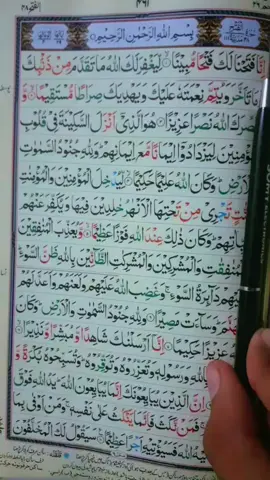 بِسْمِ اللّٰهِ الرَّحْمٰنِ الرَّحِيْمِ
اِنَّا فَتَحْنَا لَكَ فَتْحًا مُّبِيْنًا لِّيَغْفِرَ لَكَ اللّٰهُ مَا تَقَدَّمَ مِنْ ذَنْۢبِكَ
مَا تَاَخَّرَ وَيُتِمَّ نِعْمَتَهٗ عَلَيْكَ وَيَهْدِيَكَ صِرَاطًا مُّسْتَقِيْمًا وَّ
صُرَكَ اللّٰهُ نَصْرًا عَزِيْزًا هُوَ الَّذِيْۤ اَنْزَلَ السَّكِيْنَةَ فِيْ قُلُوْبِ
مُؤْمِنِيْنَ لِيَزْدَادُوْۤا اِيْمَانًا مَّعَ اِيْمَانِهِمْ وَلِلّٰهِ جُنُوْدُ السَّمٰوٰتِ
الْاَرْضِ وَكَانَ اللّٰهُ عَلِيْمًا حَكِيْمًا لِّيُدْخِلَ الْمُؤْمِنِيْنَ وَالْمُؤْمِنٰتِ
نّٰتٍ تَجْرِيْ مِنْ تَحْتِهَا الْاَنْهٰرُ خٰلِدِيْنَ فِيْهَا وَيُكَفِّرَ عَنْهُمْ
يِّاٰتِهِمْ وَكَانَ ذٰلِكَ عِنْدَ اللّٰهِ فَوْزًا عَظِيْمًا وَّيُعَذِّبَ الْمُنٰفِقِيْنَ
الْمُنٰفِقٰتِ وَالْمُشْرِكِيْنَ وَالْمُشْرِكٰتِ الظَّآنِّيْنَ بِاللّٰهِ ظَنَّ السَّوْءِ
لَيْهِمْ دَآئِرَةُ السَّوْءِ وَغَضِبَ اللّٰهُ عَلَيْهِمْ وَلَعَنَهُمْ وَاَعَدَّ لَهُمْ
جَهَنَّمَ وَسَآءَتْ مَصِيْرًا وَلِلّٰهِ جُنُوْدُ السَّمٰوٰتِ وَالْاَرْضِ وَكَانَ
عَزِيْزًا حَكِيْمًا اِنَّاۤ اَرْسَلْنٰكَ شَاهِدًا وَّمُبَشِّرًا وَّنَذِيْرًا
بِاللّٰهِ وَرَسُوْلِهٖ وَتُعَزِّرُوْهُ وَتُوَقِّرُوْهُ وَتُسَبِّحُوْهُ بُكْرَةً وَّ
اِنَّ الَّذِيْنَ يُبَايِعُوْنَكَ اِنَّمَا يُبَايِعُوْنَ اللّٰهَ يَدُ اللّٰهِ فَوْقَ
فَمَنْ نَّكَثَ فَاِنَّمَا يَنْكُثُ عَلٰى نَفْسِهٖ وَمَنْ اَوْفٰى بِمَا
عَلَيْهُ اللّٰهَ فَسَيُؤْتِيْهِ اَجْرًا عَظِيْمًا سَيَقُوْلُ لَكَ الْمُخَلَّفُوْنَ